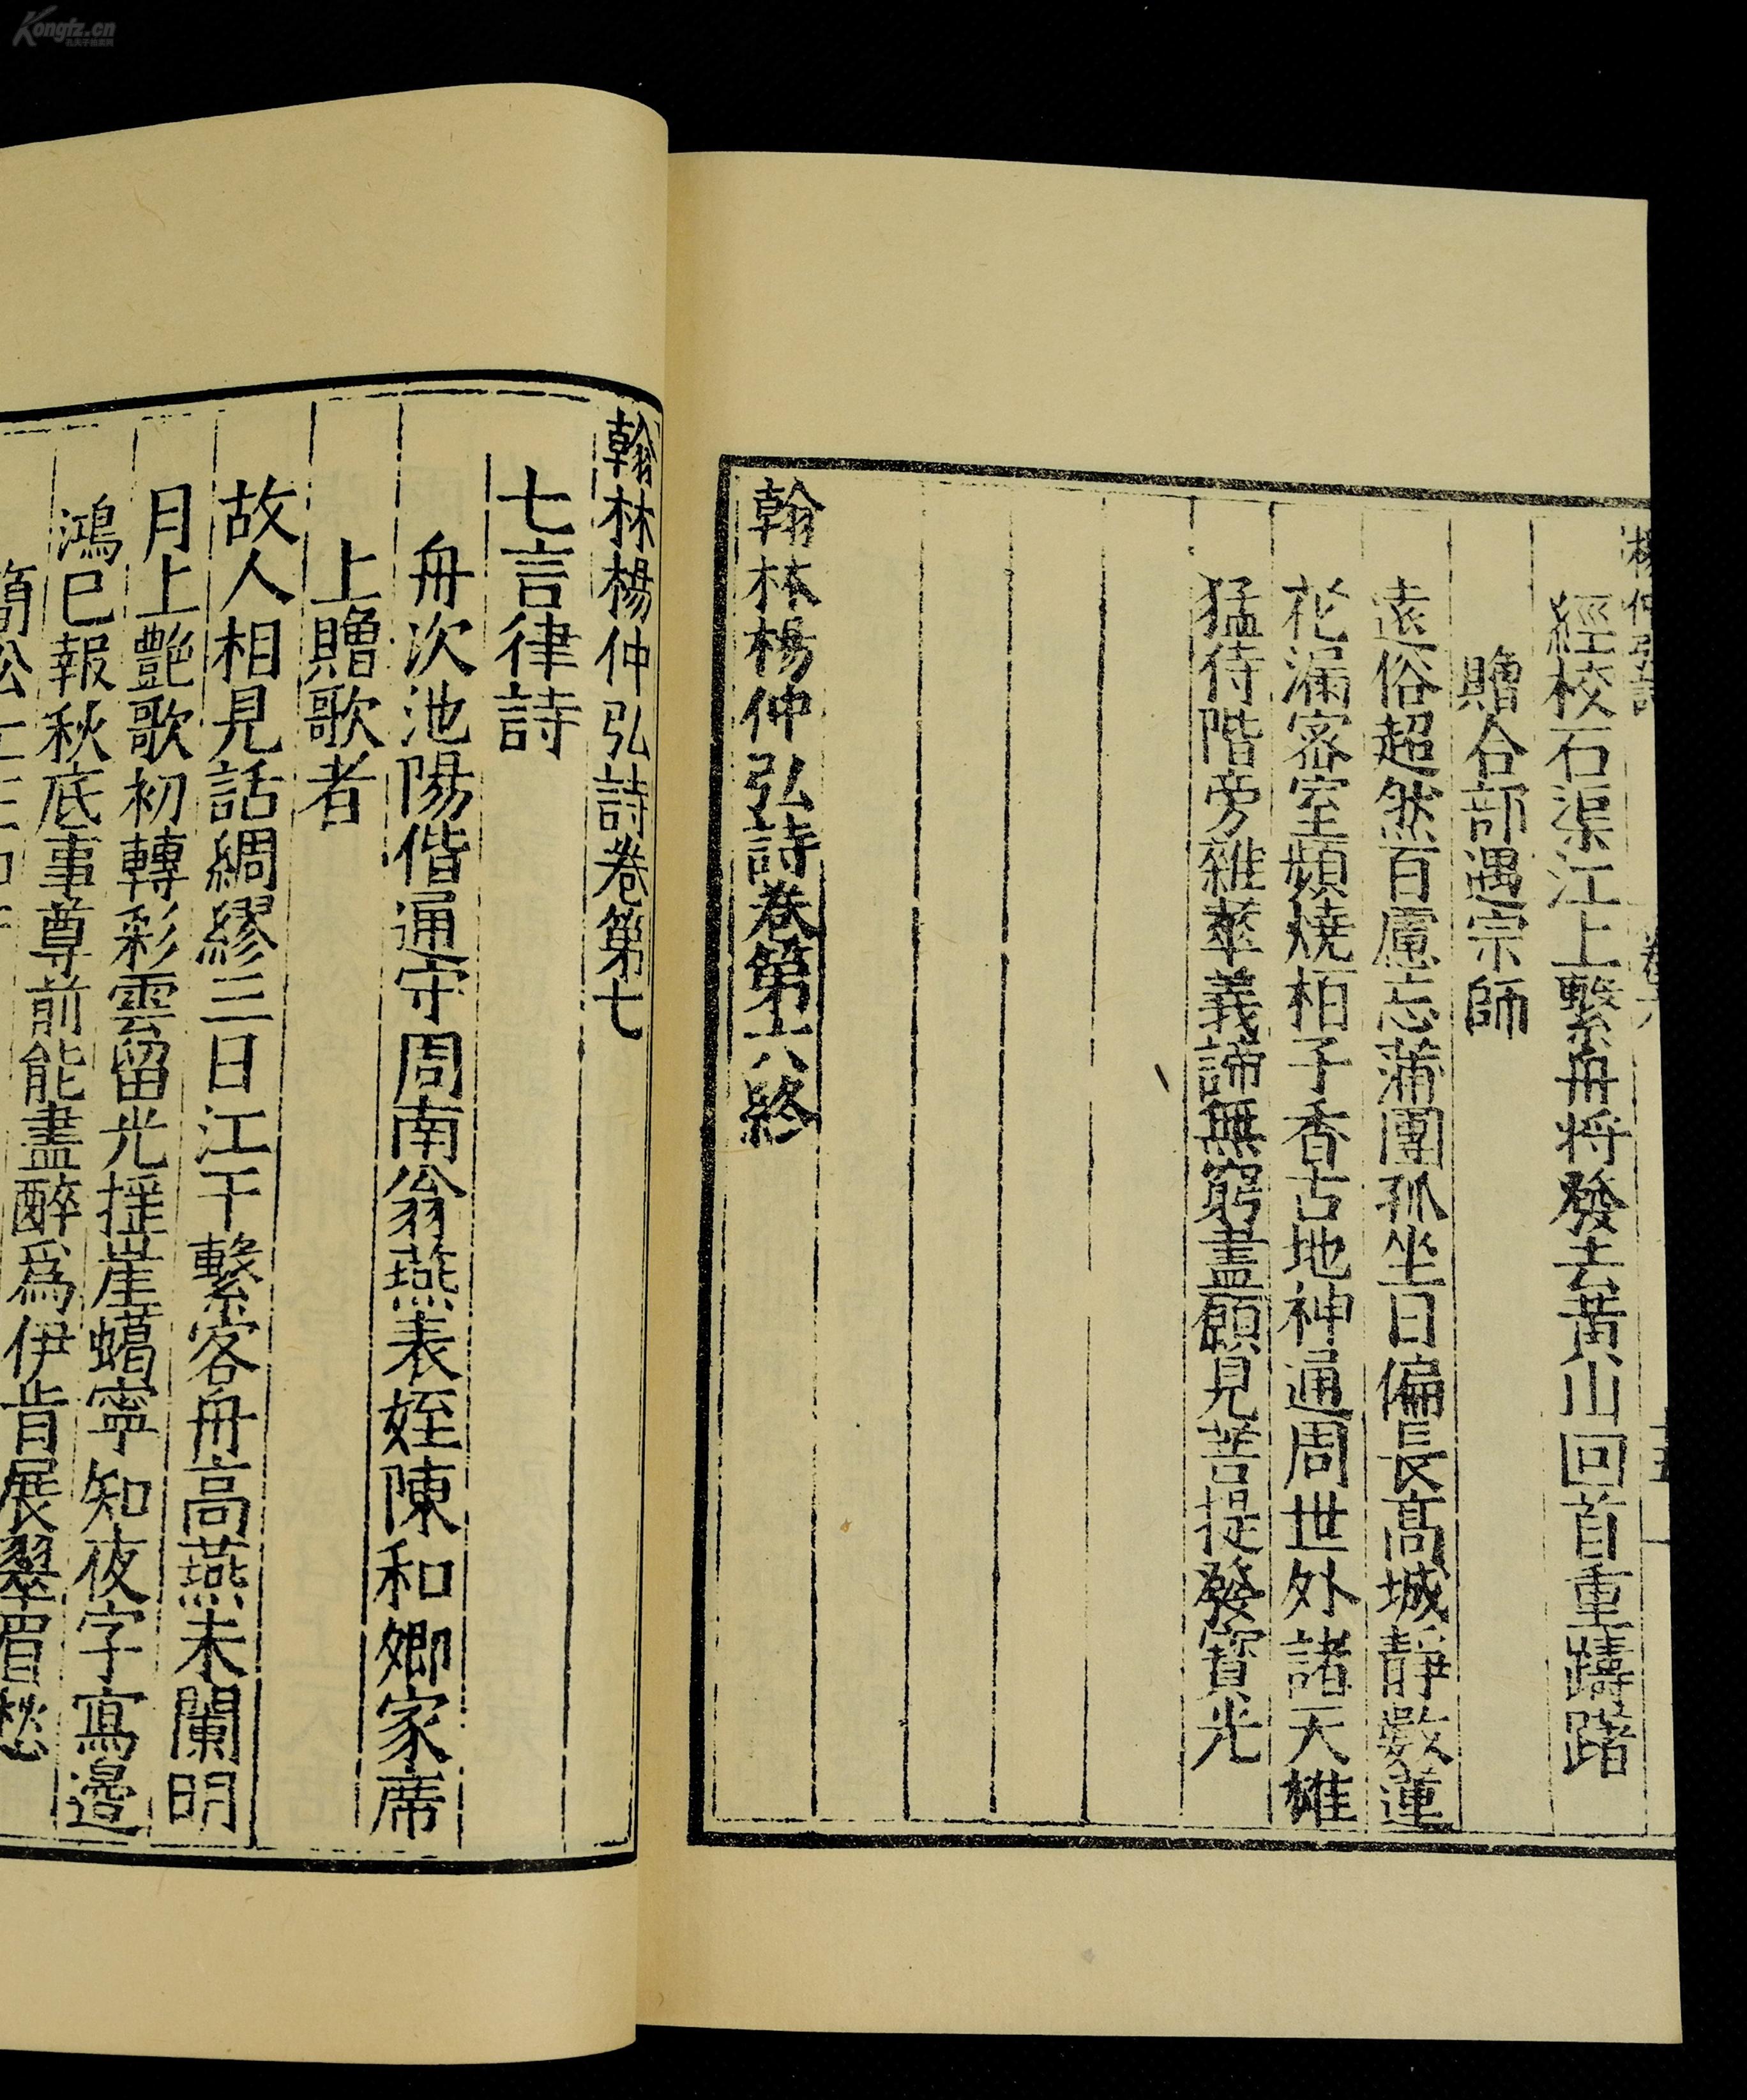 Kongfz.cn
楊仲弘詩
卷六
十五
經校石渠江上繫舟將發去黃山回首重躊躇
贈合部遇宗師
遠俗超然百慮忘蒲團孤坐日偏長高城靜數蓮
花漏密室頻燒栢子香古地神通周世外諸天雄
猛侍階旁雜華義諦無窮盡願見菩提發寶光
翰林楊仲弘詩卷第六終
翰林楊仲弘詩卷第七
七言律詩
舟次池陽偕通守周南翁燕表姪陳和卿家席
上贈歌者
故人相見話綢繆三日江干繫客舟高燕未闌明
月上艷歌初轉彩雲留光揺崖蠟寧知夜字寫邊
鴻已報秋底事尊前能盡醉爲伊肯展翠眉愁